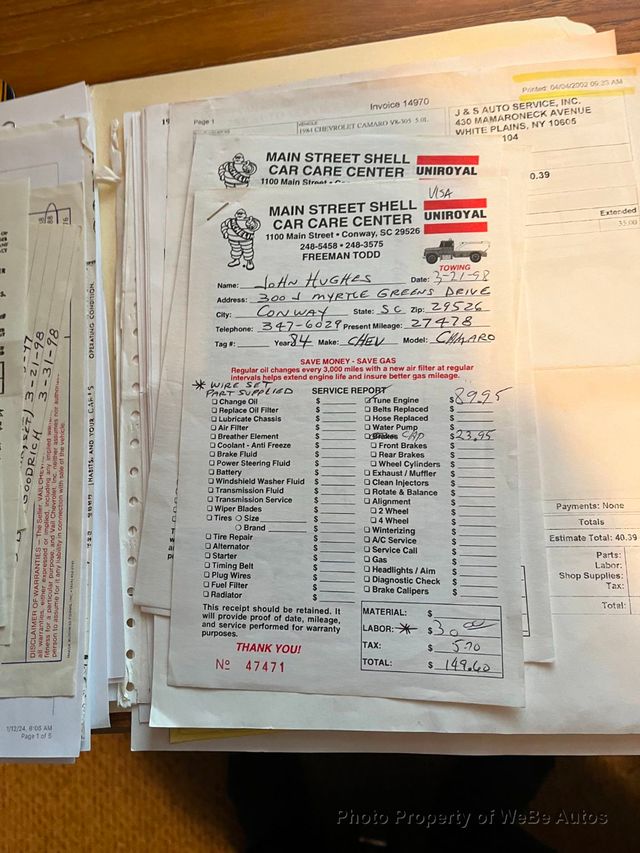 Printed: 04/04/2002 09:23 AM
Invoice 14970
Page 1
1984 CHEVROLET CAMARO V8-305 5.0L
J & S AUTO SERVICE, INC.
430 MAMARONECK AVENUE
WHITE PLAINS, NY 10605
104
0.39
Extended
35.00
MAIN STREET SHELL
CAR CARE CENTER
UNIROYAL
VISA
MAIN STREET SHELL
CAR CARE CENTER
UNIROYAL
1100 Main Street • Conway, SC 29526
248-5458 • 248-3575
FREEMAN TODD
TOWING
Name: JOHN HUGHES Date: 3-21-98
Address: 300 J MYRTLE GREENS DRIVE
City: CONWAY State: SC Zip: 29526
Telephone: 347-6029 Present Mileage: 27478
Tag #: Year 84 Make: CHEV Model: CAMARO
SAVE MONEY - SAVE GAS
Regular oil changes every 3,000 miles with a new air filter at regular
intervals helps extend engine life and insure better gas mileage.
* WIRE SET
PART SUPPLIED
SERVICE REPORT
Change Oil $
Replace Oil Filter $
Lubricate Chassis $
Air Filter $
Breather Element $
Coolant - Anti Freeze $
Brake Fluid $
Power Steering Fluid $
Battery $
Windshield Washer Fluid $
Transmission Fluid $
Transmission Service $
Wiper Blades $
Tires Size $
Brand $
Tire Repair $
Alternator $
Starter $
Timing Belt $
Plug Wires $
Fuel Filter $
Radiator $
Tune Engine $ 89.95
Belts Replaced $
Hose Replaced $
Water Pump $
Brakes CAP $ 23.95
Front Brakes $
Rear Brakes $
Wheel Cylinders $
Exhaust / Muffler $
Clean Injectors $
Rotate & Balance $
Alignment $
2 Wheel $
4 Wheel $
Winterizing $
A/C Service $
Service Call $
Gas $
Headlights / Aim $
Diagnostic Check $
Brake Calipers $
This receipt should be retained. It
will provide proof of date, mileage,
and service performed for warranty
purposes.
THANK YOU!
No 47471
MATERIAL: $
LABOR: * $ 30.00
TAX: $ 5.70
TOTAL: $ 149.60
Payments: None
Totals
Estimate Total: 40.39
Parts:
Labor:
Shop Supplies:
Tax:
Total:
GOODRICH 3-31-98
3-21-98
OPERATING CONDITION.
HABITS, AND YOUR CAR'S
DISCLAIMER OF WARRANTIES
1/12/24, 6:06 AM
Page 1 of 5
Photo Property of WeBe Autos